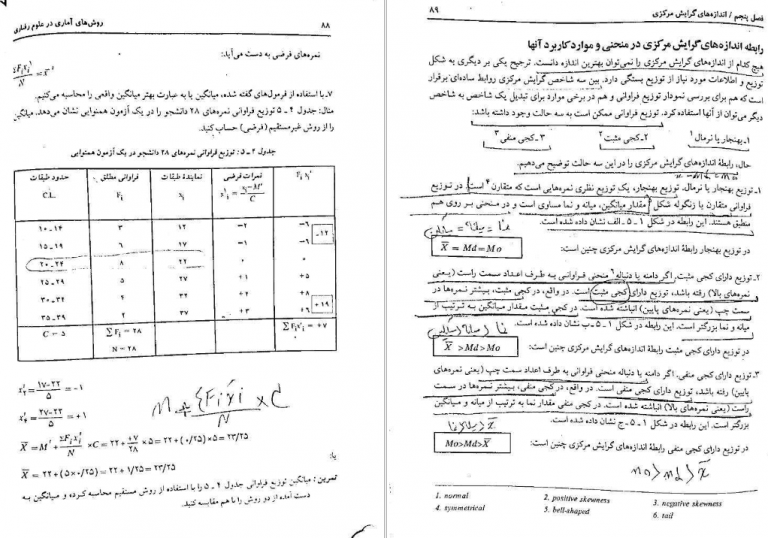 ۸۸
روش‌های آماری در علوم رفتاری
نمره‌های فرضی به دست می‌آید:
۷ـ با استفاده از فرمول‌های گفته شده، میانگین یا به عبارت بهتر میانگین واقعی را محاسبه می‌کنیم.
مثال: جدول ۴ ـ ۵ توزیع فراوانی نمره‌های ۲۸ دانشجو را در یک آزمون همنوایی نشان می‌دهد. میانگین
را از روش غیرمستقیم (فرضی) حساب کنید.
جدول ۴ ـ ۵ : توزیع فراوانی نمره‌های ۲۸ دانشجو در یک آزمون همنوایی
حدود طبقات C.L. فراوانی مطلق Fi نمایندهٔ طبقات xi نمرات فرضی x'i = (xi−M')/C Fi x'i
۱۰-۱۴ ۳ ۱۲ −۲ −۶
۱۵-۱۹ ۶ ۱۷ −۱ −۶ −۱۲
۲۰-۲۴ ۸ ۲۲ ۰ ۰
۲۵-۲۹ ۵ ۲۷ +۱ +۵
۳۰-۳۴ ۴ ۳۲ +۲ +۸
۳۵-۳۹ ۲ ۳۷ +۳ +۶ +۱۹
C = ۵ ∑Fi = ۲۸ ∑Fix'i = +۷
N = ۲۸
= (۱۷−۲۲)/۵ = −۱
= (۲۷−۲۲)/۵ = +۱
X̄ = M' + ∑Fix'i/N × C = ۲۲ + +۷/۲۸ × ۵ = ۲۲ + (۰/۲۵) × ۵ = ۲۳/۲۵
یا:
X̄ = ۲۲ + (۵×۰/۲۵) = ۲۲ + ۱/۲۵ = ۲۳/۲۵
تمرین: میانگین توزیع فراوانی جدول ۴ ـ ۵ را با استفاده از روش مستقیم محاسبه کرده و میانگین به
دست آمده از دو روش را با هم مقایسه کنید.
فصل پنجم / اندازه‌های گرایش مرکزی
۸۹
رابطه اندازه‌های گرایش مرکزی در منحنی و موارد کاربرد آنها
هیچ کدام از اندازه‌های گرایش مرکزی را نمی‌توان بهترین اندازه دانست. ترجیح یکی بر دیگری به شکل
توزیع و اطلاعات مورد نیاز از توزیع بستگی دارد. بین سه شاخص گرایش مرکزی روابط ساده‌ای برقرار
است که هم برای بررسی نمودار توزیع فراوانی و هم در برخی موارد برای تبدیل یک شاخص به شاخص
دیگر می‌توان از آنها استفاده کرد. توزیع فراوانی ممکن است به سه حالت وجود داشته باشد:
۱ـ بهنجار یا نرمال ۱ ۲ـ کجی مثبت ۲ ۳ـ کجی منفی ۳
حال، رابطهٔ اندازه‌های گرایش مرکزی را در این سه حالت توضیح می‌دهیم.
۱ـ توزیع بهنجار یا نرمال. توزیع بهنجار، یک توزیع نظری نمره‌هایی است که متقارن ۴ است. در توزیع
فراوانی متقارن یا زنگوله شکل ۵ مقدار میانگین، میانه و نما مساوی است و در منحنی بر روی هم
منطبق هستند. این رابطه در شکل ۱ ـ ۵ ـ الف نشان داده شده است.
نما = میانه = میانگین
در توزیع بهنجار رابطهٔ اندازه‌های گرایش مرکزی چنین است: X̄ = Md = Mo
۲ـ توزیع دارای کجی مثبت. اگر دامنه یا دنباله ۶ منحنی فراوانی به طرف اعداد سمت راست (یعنی
نمره‌های بالا) رفته باشد، توزیع دارای کجی مثبت است. در واقع، در کجی مثبت، بیشتر نمره‌ها در
سمت چپ (یعنی نمره‌های پایین) انباشته شده است. در کجی مثبت مقدار میانگین به ترتیب از
میانه و نما بزرگتر است. این رابطه در شکل ۱ ـ ۵ ـ ب نشان داده شده است.
در توزیع دارای کجی مثبت رابطهٔ اندازه‌های گرایش مرکزی چنین است: X̄ > Md > Mo
۳ـ توزیع دارای کجی منفی. اگر دامنه یا دنباله منحنی فراوانی به طرف اعداد سمت چپ (یعنی نمره‌های
پایین) رفته باشد، توزیع دارای کجی منفی است. در واقع، در کجی منفی، بیشتر نمره‌ها در سمت
راست (یعنی نمره‌های بالا) انباشته شده است. در کجی منفی مقدار نما به ترتیب از میانه و میانگین
بزرگتر است. این رابطه در شکل ۱ ـ ۵ ـ ج نشان داده شده است.
در توزیع دارای کجی منفی رابطهٔ اندازه‌های گرایش مرکزی چنین است: Mo > Md > X̄
mo > md > x̄
1. normal 2. positive skewness 3. negative skewness
4. symmetrical 5. bell-shaped 6. tail